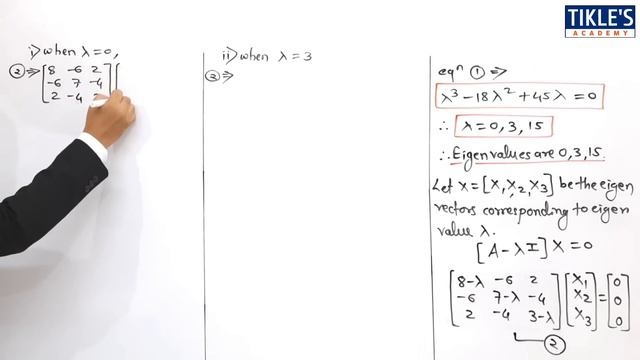 TIKLE'S
ACADEMY
i) when λ=0,
② ⇒ [8 -6 2
-6 7 -4
2 -4
ii) when λ = 3
② ⇒
eqⁿ ① ⇒
λ³ - 18λ² + 45λ = 0
∴ λ = 0, 3, 15
∴ Eigen values are 0, 3, 15.
Let X = [X, X₂, X₃] be the eigen
vectors corresponding to eigen
value λ.
[A - λI] X = 0
[8-λ -6 2] [X₁] [0]
[-6 7-λ -4] [X₂] = [0]
[2 -4 3-λ] [X₃] [0]
②